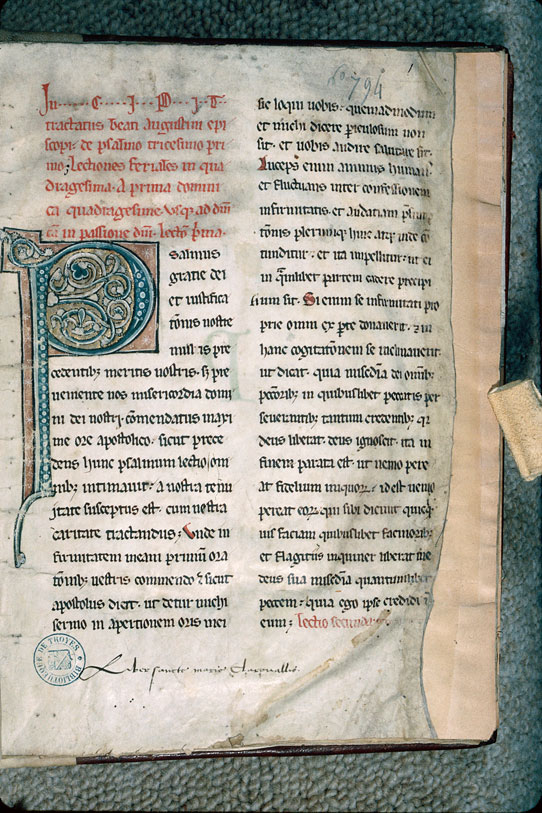 794
1
In C I P I T
tractatus beati augustini epi
scopi de psalmo tricesimo pri
mo; Lectiones feriales in qua
dragesima. A prima domini
ca quadragesime usq; ad dñi
cã in passione dñi. Lectio p̃ma.
Psalmus
gratie dei
et iustifica
tionis nostre
nullis pre
cedentib; meritis nostris. s; pre
veniente nos misericordia domi
ni dei nostri. cõmendatus maxi
me ore apostolico. sicut prece
dens hunc psalmum lectio om
nib; intimavit. A nostra tenu
itate susceptus est. cum vestra
caritate tractandus; Unde in
firmitatem meam primũ ora
tõnib; vestris commendo. & sicut
apostolus dicit. ut detur michi
sermo in apertionem oris mei
sic loqui vobis. quemadmodum
et michi dicere periculosum non
sit. et vobis audire salutare sit.
Anceps enim animus humani
et fluctuans inter confessionem
infirmitatis et audatiam
tõnis plerumq; hinc atq; inde cõ
tunditur. et ita impellitur. ut ei
in quamlibet partem cadere precipi
tium sit. Si enim se infirmitati pro
prie omni ex pte donaverit. &
hanc cogitatõnem se inclinaverit
ut dicat. quia misedia dei omib;
peccõrib; in quibuslibet peccatis per
severantib; tantum credentib; qd
deus liberat. deus ignoscit. ita in
finem parata est. ut nemo pere
at fidelium iniquor. id est nemo
pereat eor qui sibi dicunt quicq;
vis faciam quibuslibet facinorib;
et flagitiis inquiner liberat me
deus sua misedia quantumlibet
peccem. quia ego ipse credidi i
eum; Lectio secunda
BIBLIOTHEQUE DE TROYES
Liber sancte marie Clarevallis.